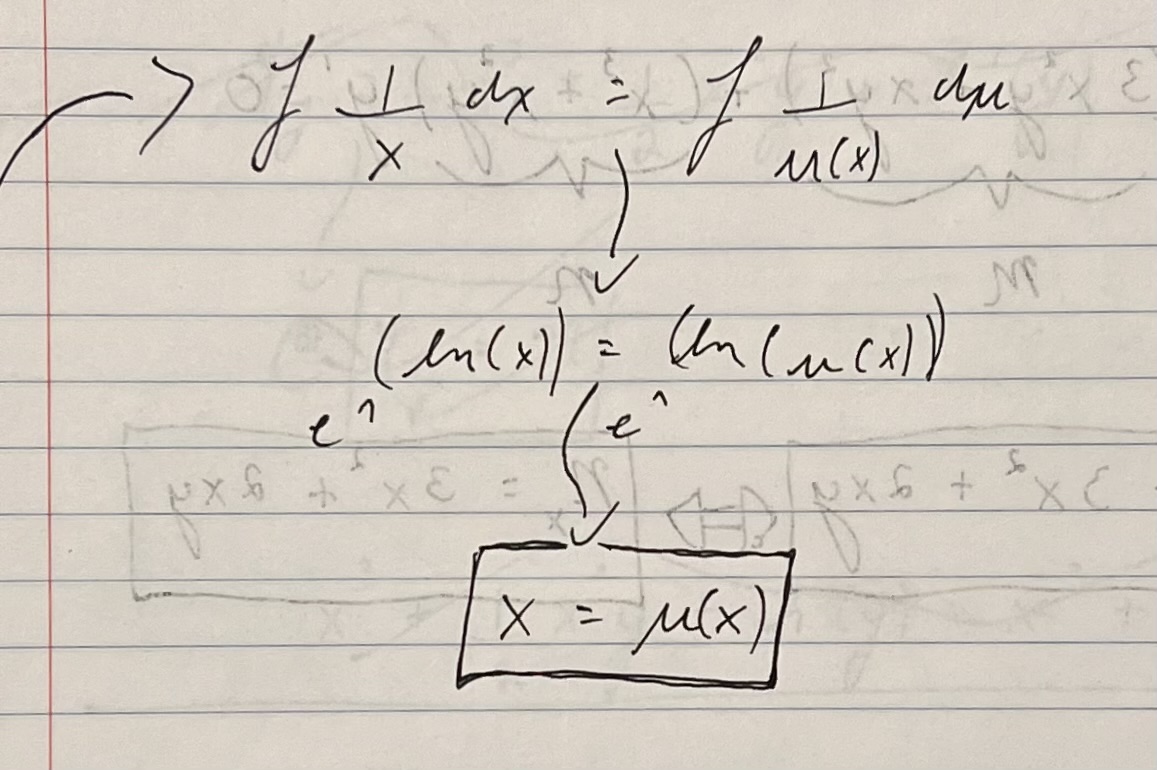 ∫ 1/x dx = ∫ 1/μ(x) dμ
e^(ln(x)) = e^(ln(μ(x)))
x = μ(x)